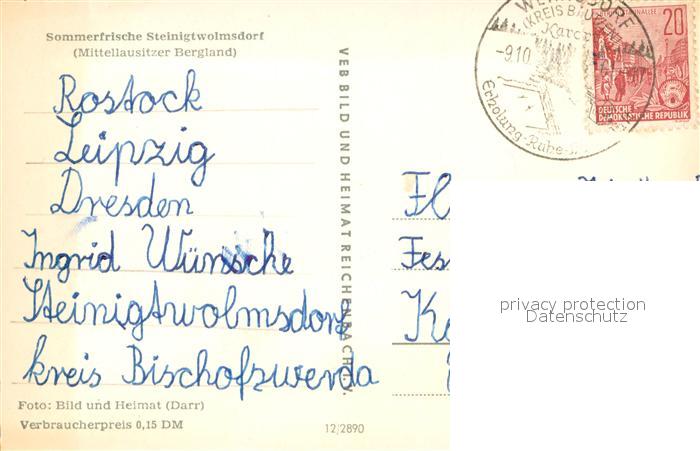 Sommerfrische Steinigtwolmsdorf
(Mittellausitzer Bergland)
Rostock
Leipzig
Dresden
Ingrid Wünsche
Steinigtwolmsdorf
kreis Bischofswerda
Foto: Bild und Heimat (Darr)
Verbraucherpreis 0,15 DM
12/2890
VEB BILD UND HEIMAT REICHENBACH
(KREIS BAUTZEN)
-9.10
Erholung-Ruhe-
20
DEUTSCHE
DEMOKRATISCHE REPUBLIK
privacy protection
Datenschutz